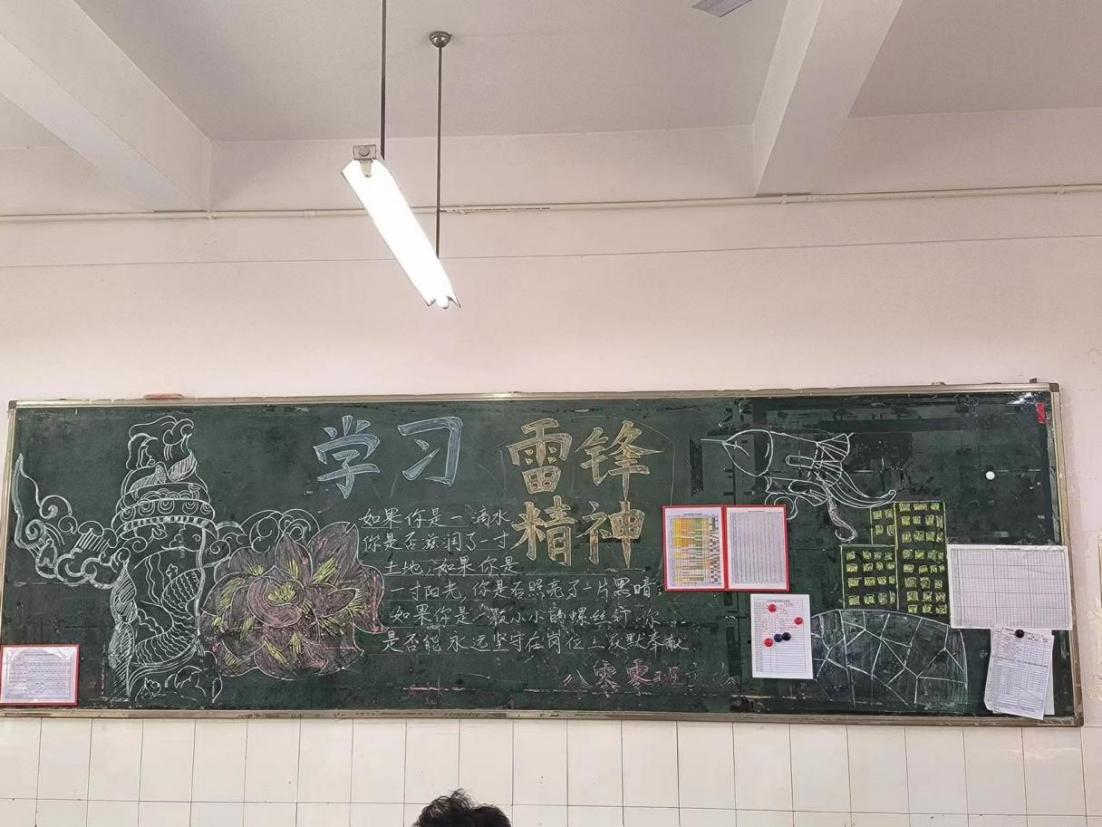 学习 雷锋
精神
如果你是一滴水
你是否滋润了一寸
土地,如果你是
一寸阳光,你是否照亮了一片黑暗,
如果你是一颗小小的螺丝钉,你
是否能永远坚守在岗位上默默奉献
八零零班